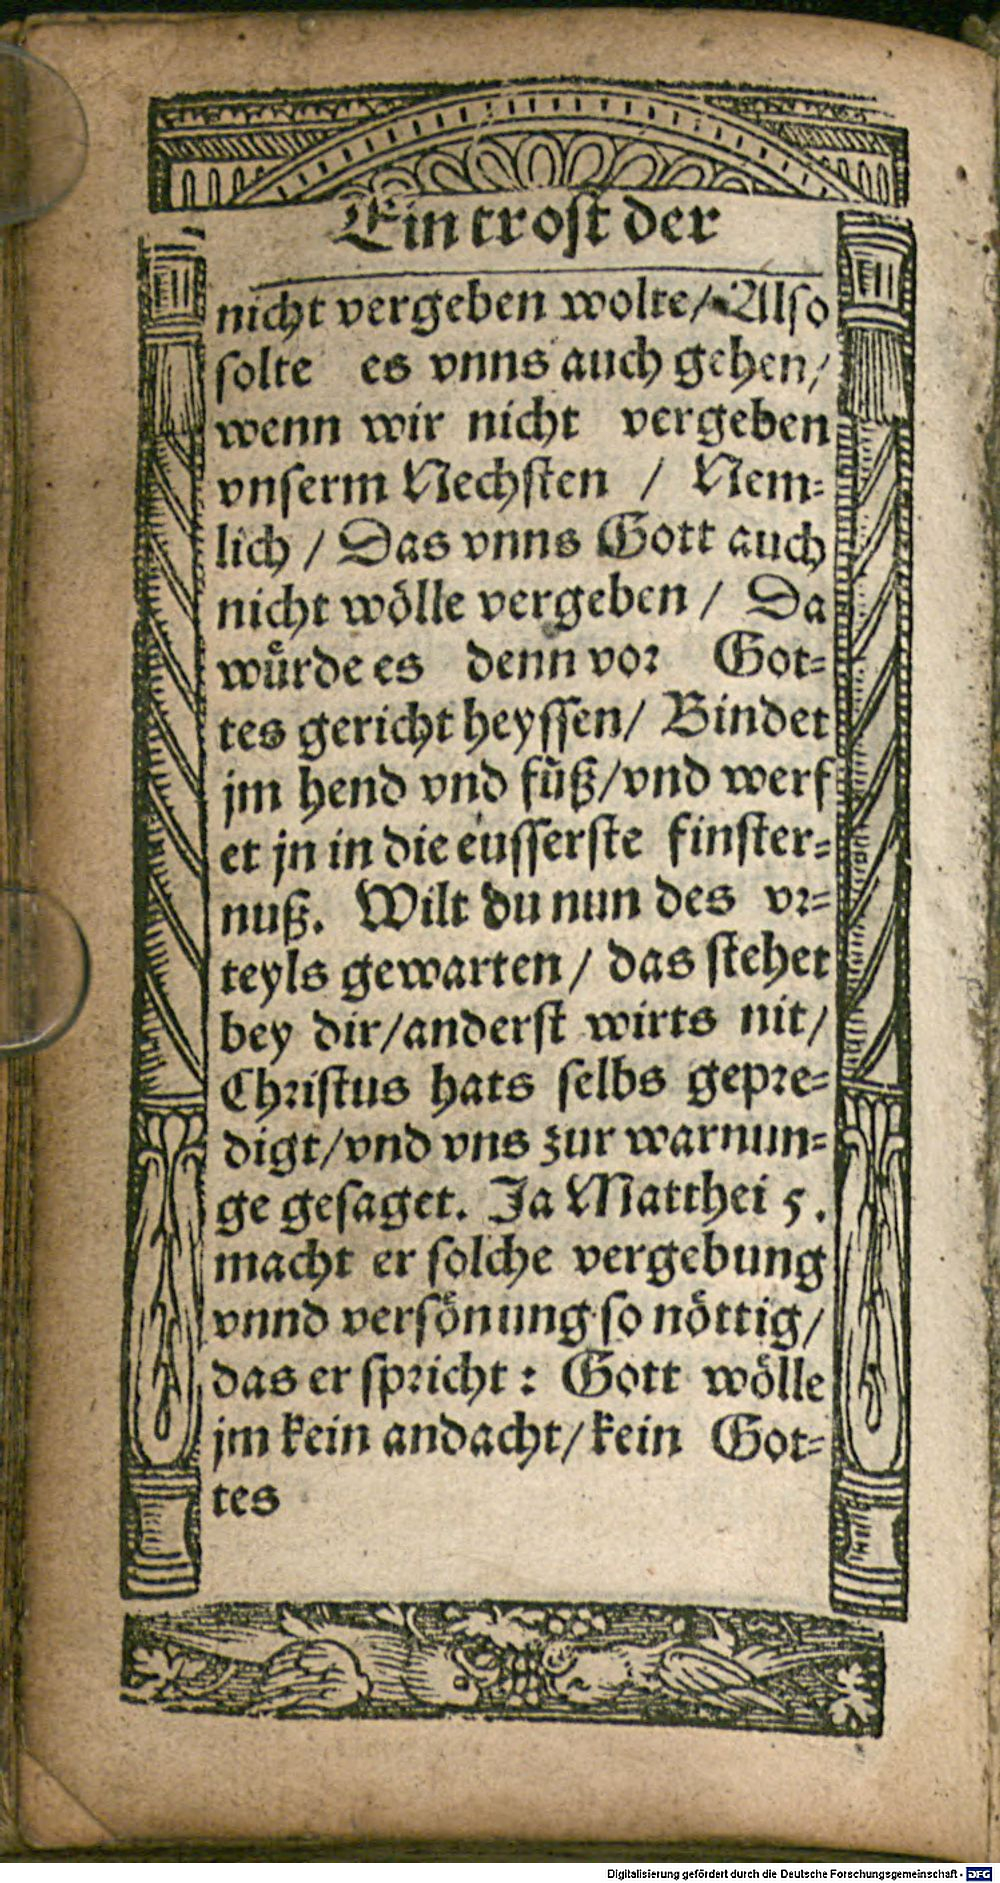 Ein trost der
nicht vergeben wolte/ Also
solte es vnns auch gehen/
wenn wir nicht vergeben
vnserm Nechsten / Nem-
lich / Das vnns Gott auch
nicht wölle vergeben / Da
würde es denn vor Got-
tes gericht heyssen/ Bindet
jm hend vnd füß/vnd werf
et jn in die eusserste finster-
nuß. Wilt du nun des vr-
teyls gewarten / das stehet
bey dir/anderst wirts nit/
Christus hats selbs gepre-
digt/vnd vns zur warnun-
ge gesaget. Ja Matthei 5.
macht er solche vergebung
vnnd versönung so nöttig/
das er spricht : Gott wölle
jm kein andacht/kein Got-
tes
Digitalisierung gefördert durch die Deutsche Forschungsgemeinschaft - DFG